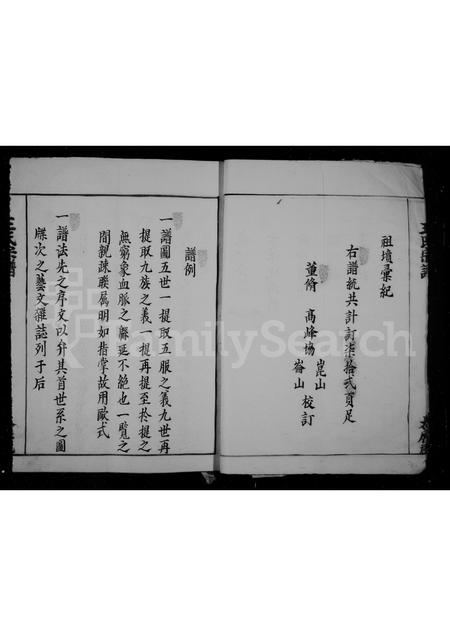 祖墳彙紀
右譜統共計訂柒拾弍頁足
崑山
董脩 高峰協 校訂
崙山
譜例
一譜圖五世一提取五服之義九世再
提取九族之義一提再提至於提之
無窮象血脈之綿延不絶也一覽之
間親疎聯属明如指掌故用歐式
一譜法先之序文以弁其首世系之圖
牒次之藝文雜誌列于后
FamilySearch